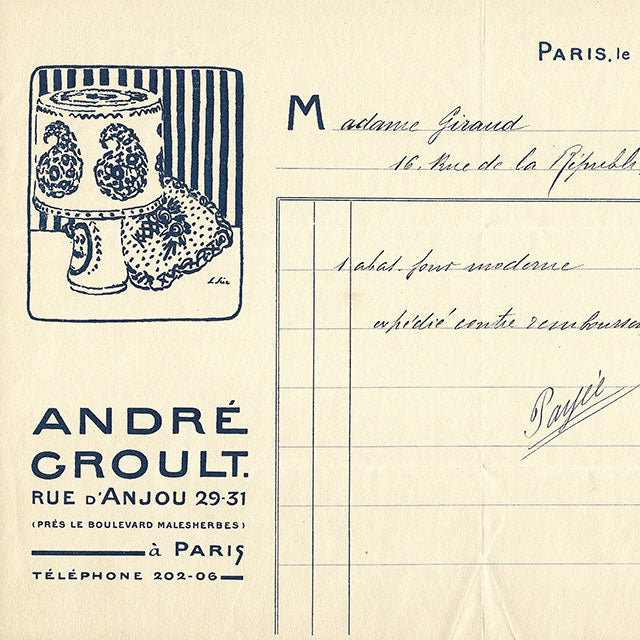 PARIS, le
Madame Giraud
16, Rue de la Républi
1 abat-jour moderne
expédié contre rembourse
Payée
ANDRÉ
GROULT.
RUE D'ANJOU 29-31
(PRÈS LE BOULEVARD MALESHERBES)
à PARIS
TÉLÉPHONE 202-06